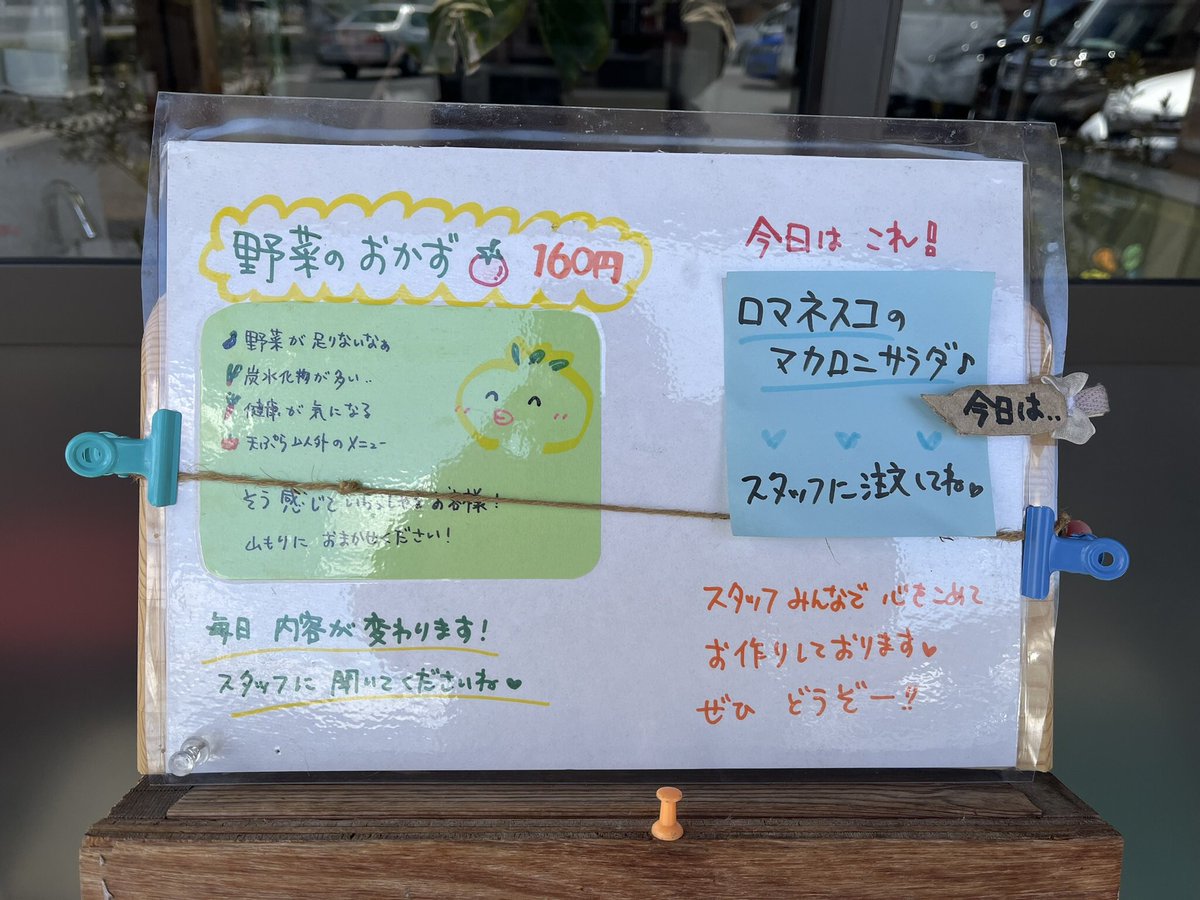 野菜のおかず 160円
野菜が足りないなぁ
炭水化物が多い..
健康が気になる
天ぷら以外のメニュー
そう感じていらっしゃるお客様!
山もりにおまかせください!
毎日 内容が変わります!
スタッフに聞いてくださいね♥
今日は これ!!
ロマネスコの
マカロニサラダ♪
今日は..
スタッフに注文してね♥
スタッフみんなで 心をこめて
お作りしております♥
ぜひ どうぞー!!